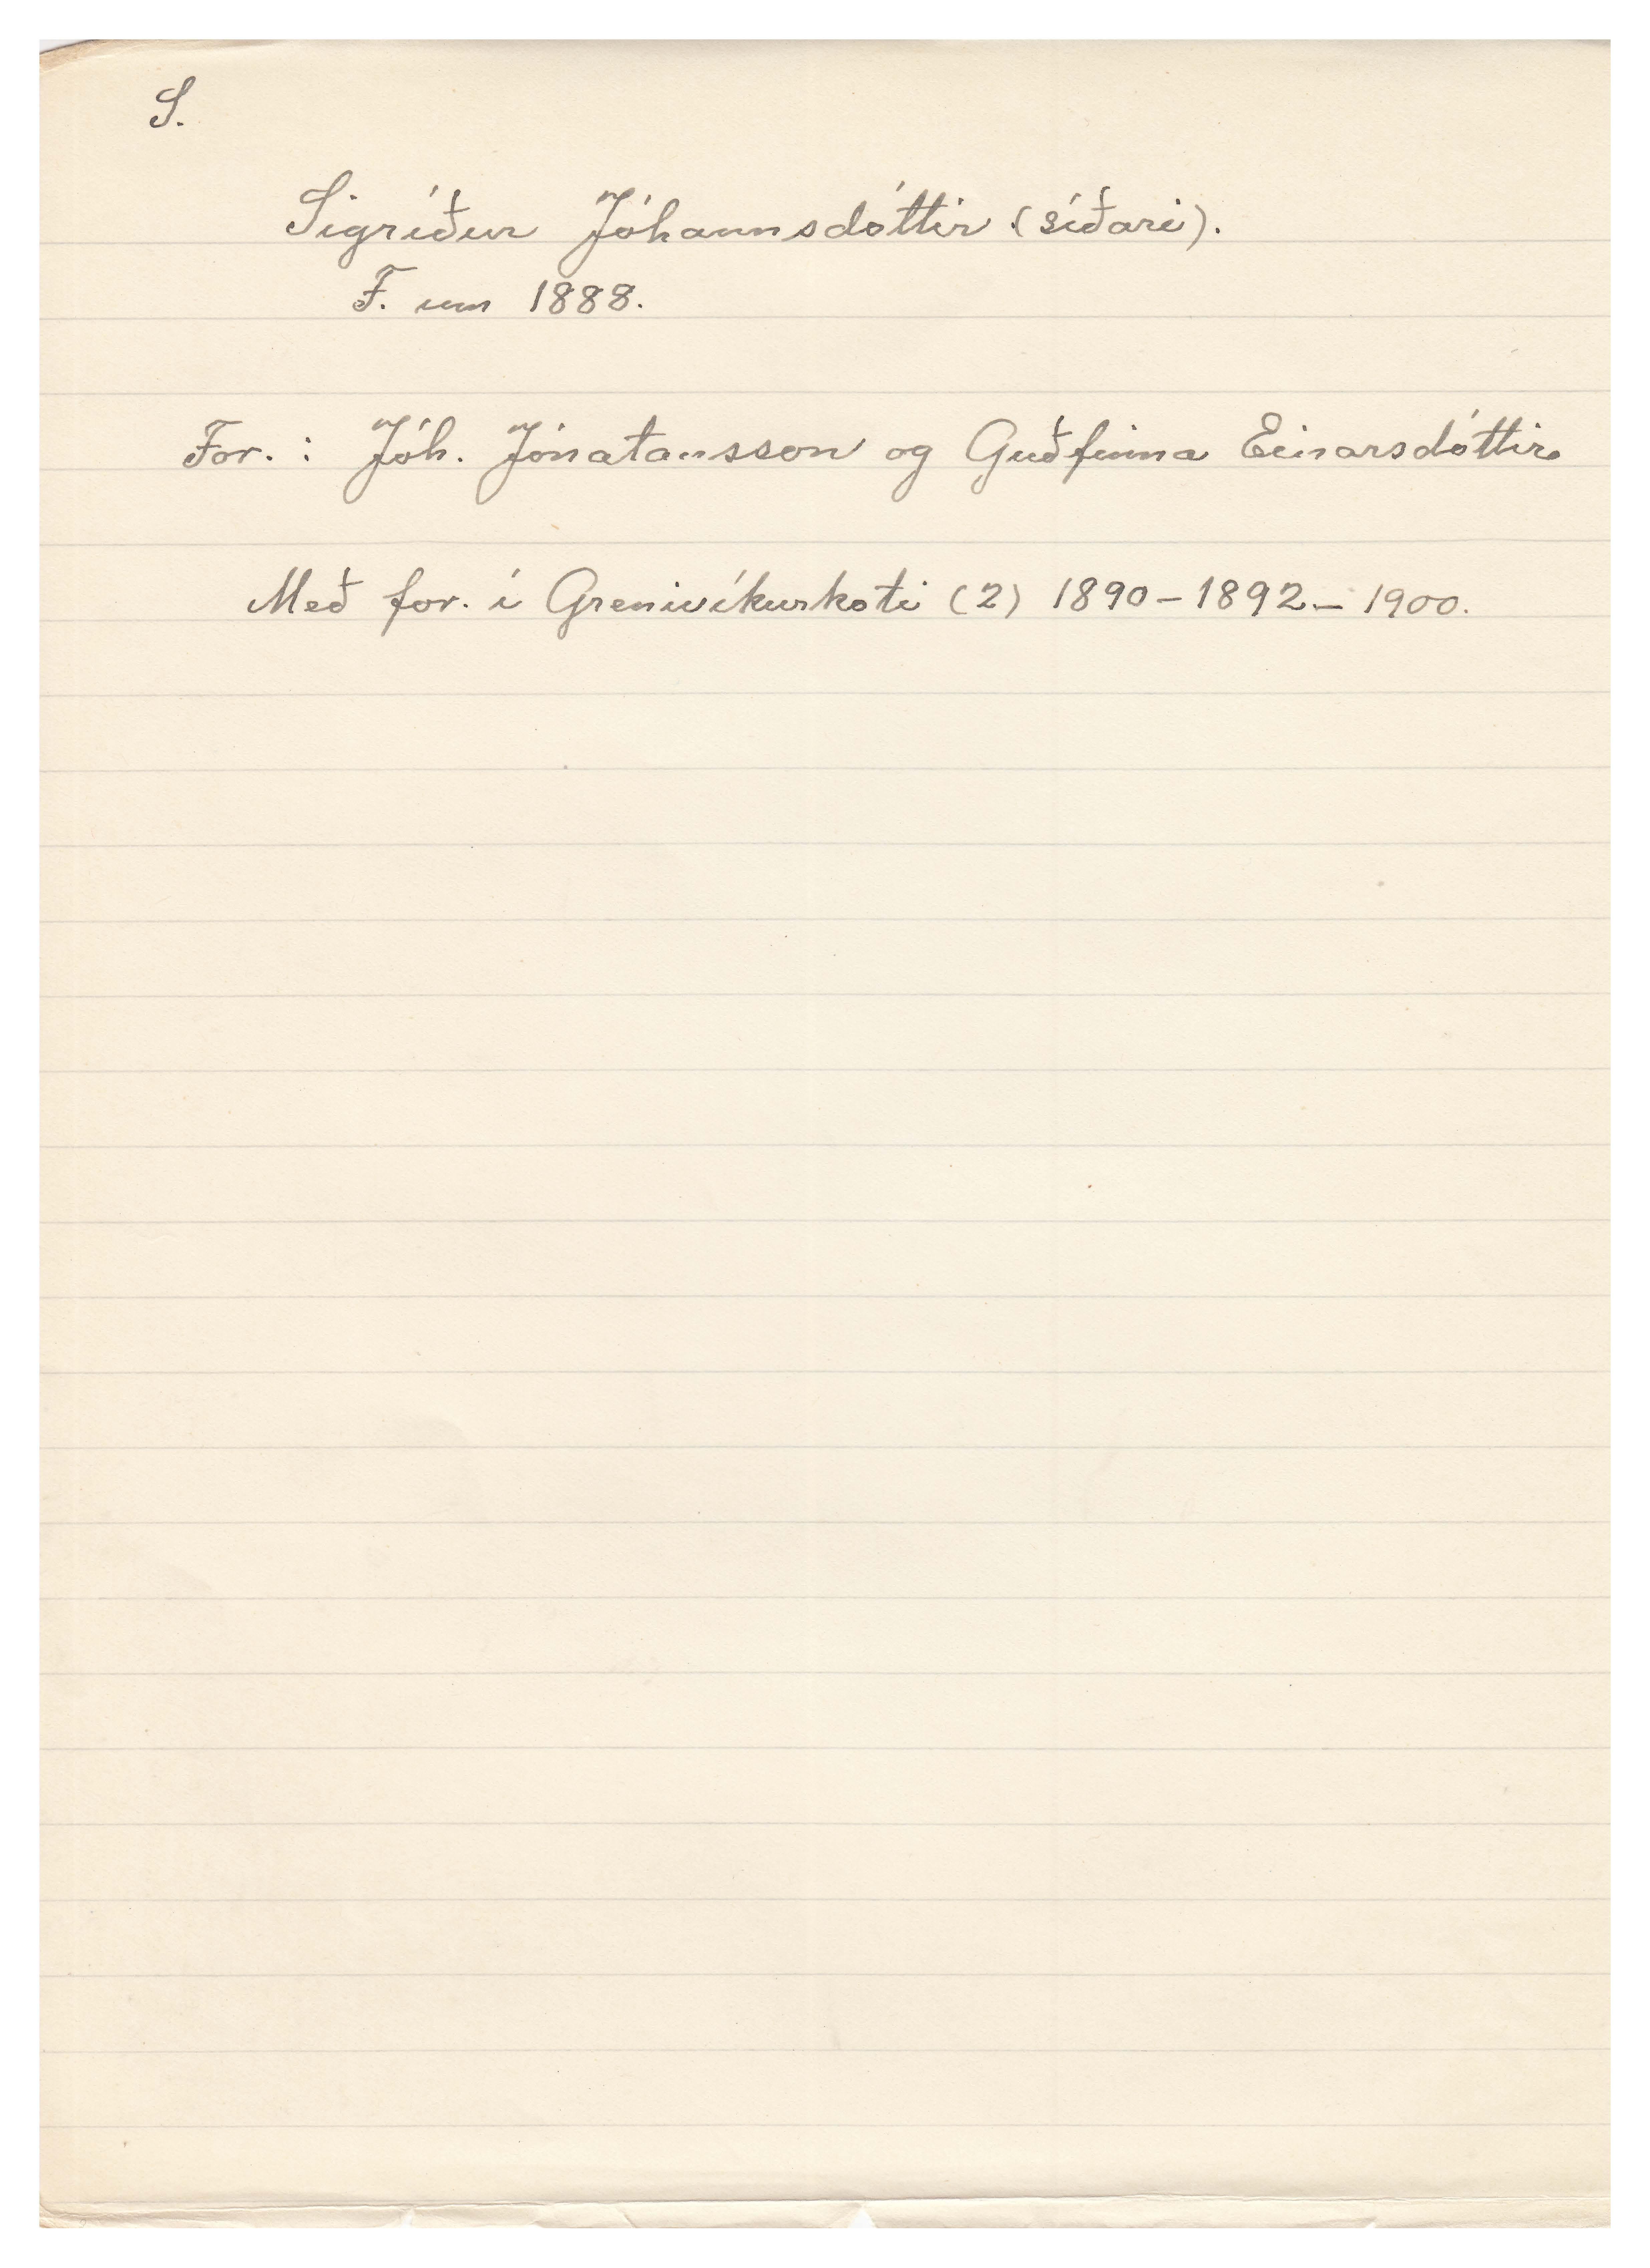 S.
Sigríður Jóhannsdóttir (síðari).
F. um 1888.
For. : Jóh. Jónatansson og Guðfinna Einarsdóttir.
Með for. í Grenivíkurkoti (2) 1890-1892- 1900.